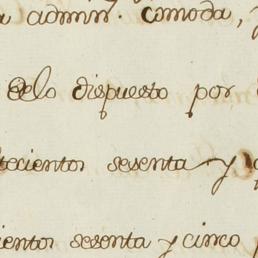 a admin.n comoda,
delo dispuesto por
tecientos sesenta y
cientos sesenta y cinco